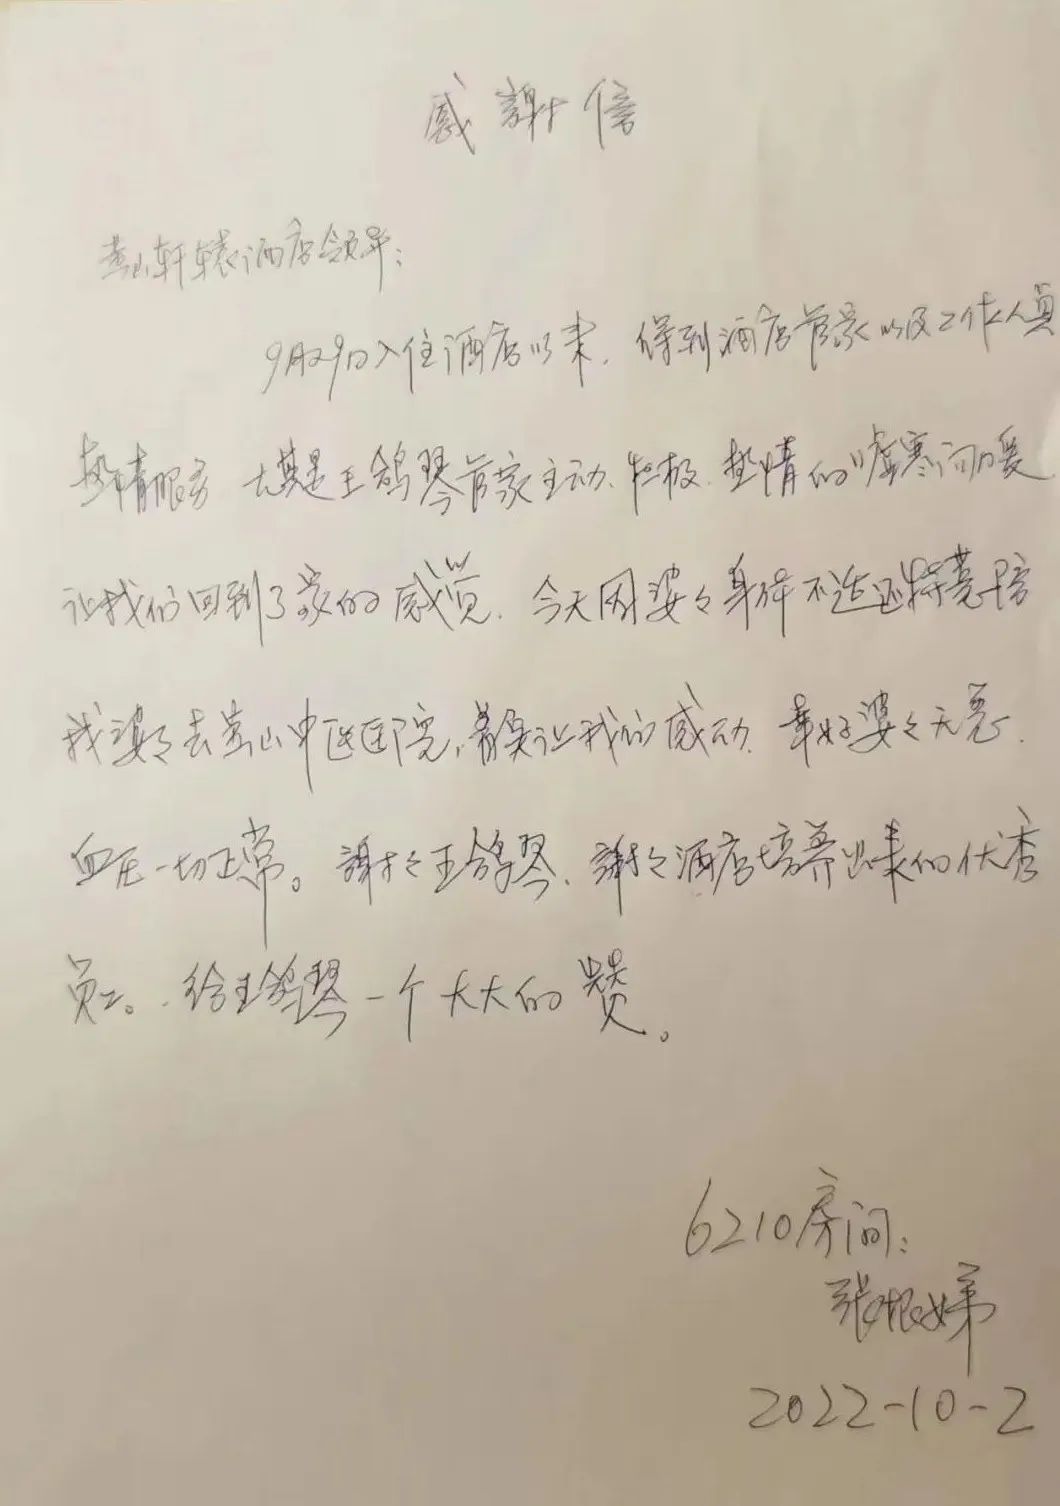 感謝信
黄山轩辕酒店领导：
9月29日入住酒店以来，得到酒店管家以及工作人员
热情服务 尤其是王鸽琴管家主动、积极、热情的"嘘寒问暖
让我们回到了家的感觉．今天因婆々身体不适还特意陪
我婆々去黄山中医医院，着实让我们感动．幸好婆々无恙．
血压一切正常。謝々王鸽琴、謝々酒店培养出来的优秀
员工。给王鸽琴一个大大的赞。
6210房间：
张根娣
2022-10-2